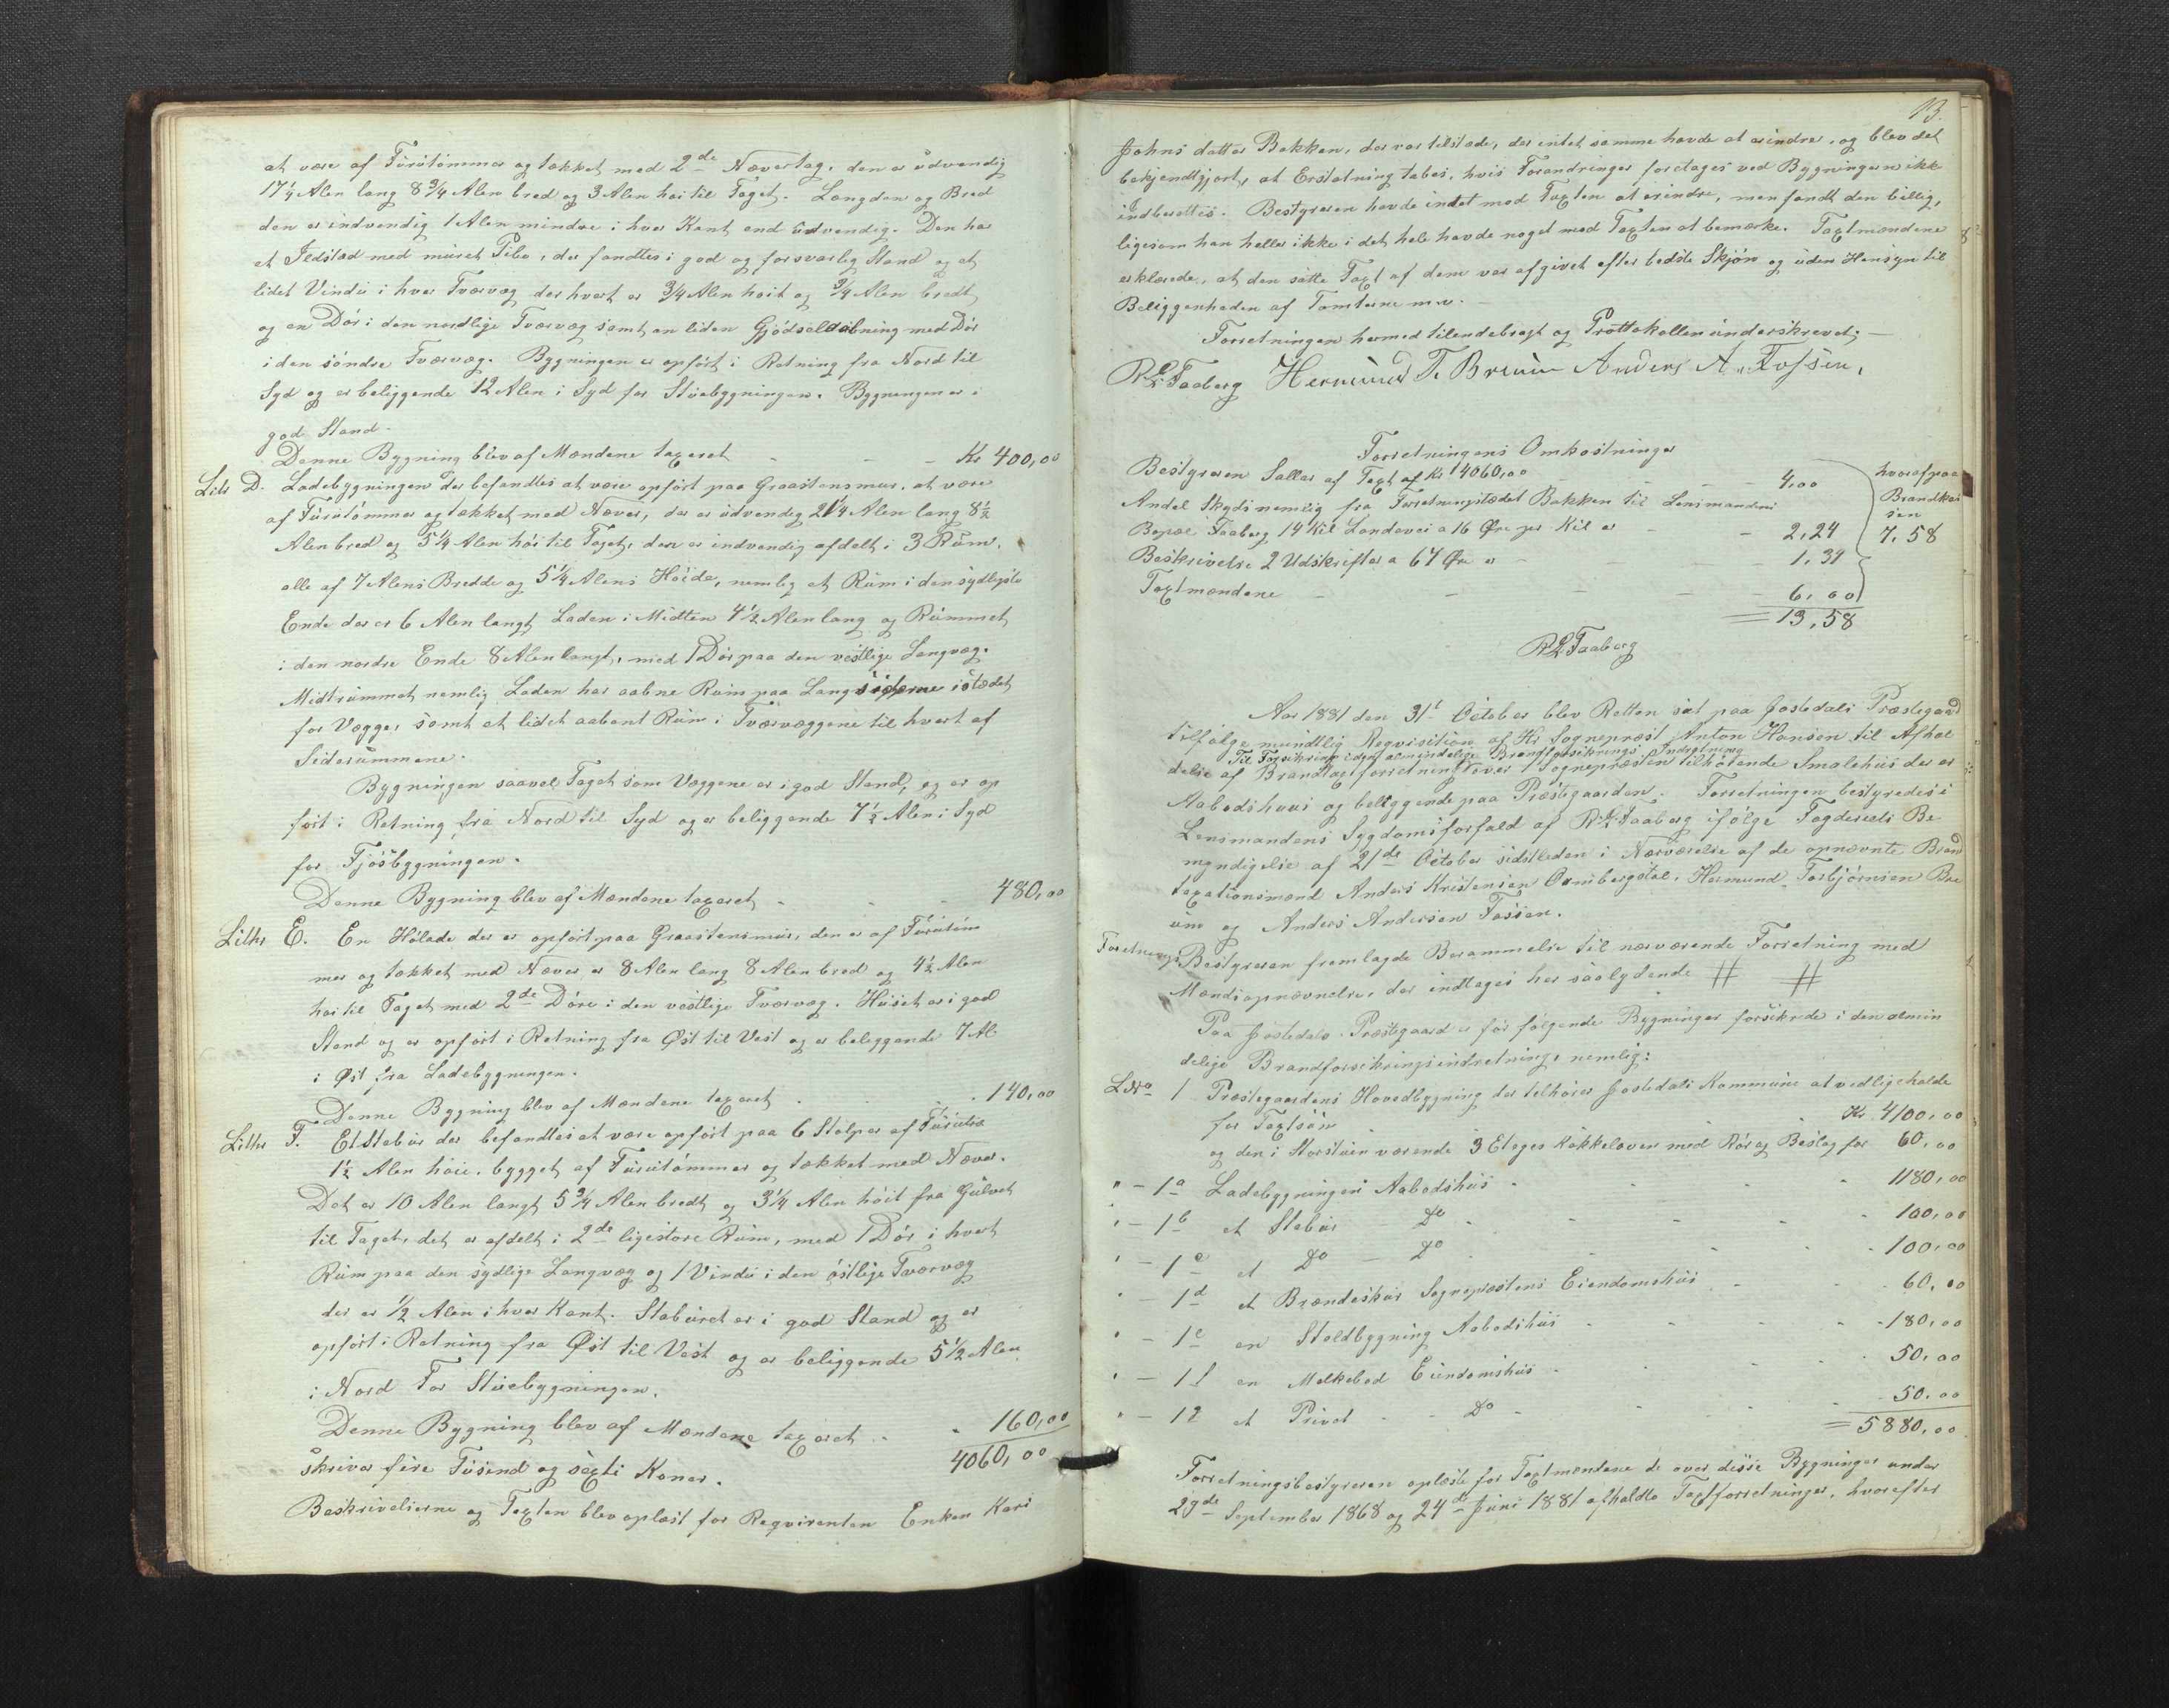 at være af Furutømmer og tækket med 2de Nævertag, den er udvendig
17¼ Alen lang 8¾ Alen bred og 3 Alen høi til Taget. Længden og Bred
den er indvendig 1 Alen mindre i hver Kant end udvendig. Den har
et Ildsted med muret Pibe, der fandtes i god og forsvarlig Stand og et
lidet Vindu i hver Tværvæg der hvert er ¾ Alen høit og ¾ Alen bredt,
og en Dør i den nordlige Tværvæg samt en liden Gjødselaabning med Dør
i den søndre Tværvæg. Bygningen er opført i Retning fra Nord til
Syd og er beliggende 12 Alen i Syd for Stuebygningen. Bygningen er i
god Stand.
Denne Bygning blev af Mændene taxeret - - - Kr 400,00
Litr D. Ladebygningen der befandtes at være opført paa Graastensmur, at være
af Furutømmer og tækket med Næver, der er udvendig 21¼ Alen lang 8½
Alen bred og 5¼ Alen høi til Taget, den er indvendig afdelt i 3 Rum,
alle af 7 Alens Bredde og 5¼ Alens Høide, nemlig et Rum i den sydligste
Ende der er 6 Alen langt, Laden i Midten 4½ Alen lang og Rummet
i den nordre Ende 8 Alen langt, med 1 Dør paa den vestlige Langvæg.
Midtrummet nemlig Laden har aabne Rum paa Langsiderne istedet
for Vægge, samt et lidet aabent Rum i Tværvæggene til hvert af
Siderummene.
Bygningen saavel Taget som Væggene er i god Stand, og er op
ført i Retning fra Nord til Syd og er beliggende 7½ Alen i Syd
for Fjøsbygningen.
Denne Bygning blev af Mændene taxeret - - - 480,00
Littr E. En Hølade der er opført paa Graastensmur, den er af Furutøm
mer og tækket med Næver, er 8 Alen lang 8 Alen bred og 4½ Alen
høi til Taget med 2de Døre i den vestlige Tværvæg. Huset er i god
Stand og er opført i Retning fra Øst til Vest og er beliggende 7 Al
i Øst fra Ladebygningen.
Denne Bygning blev af Mændene taxeret - - - 140,00
Littr F. Et Stabur der befandtes at være opført paa 6 Stolper af Furutræ
1½ Alen høie, bygget af Furutømmer og tækket med Næver.
Det er 10 Alen langt 5¾ Alen bredt og 3¼ Alen høit fra Gulvet
til Taget, det er afdelt i 2de ligestore Rum, med 1 Dør i hvert
Rum paa den sydlige Langvæg og 1 Vindu i den østlige Tværvæg
der er ½ Alen i hver Kant. Staburet er i god Stand og er
opført i Retning fra Øst til Vest og er beliggende 5½ Alen
i Nord for Stuebygningen.
Denne Bygning blev af Mændene taxeret - - 160,00
4060,00
skriver fire Tusind og sexti Kroner.
Beskrivelserne og Taxten blev oplæst for Reqvirenten Enken Kari
13.
Johns datter Bakken, der var tilstede, der intet samme havde at erindre, og blev det
bekjendtgjort, at Erstatning tabes, hvis Forandringer foretages ved Bygningerne ikk
indberettes. Bestyreren havde intet mod Taxten at erindre, men fandt den billig,
ligesom han heller ikke i det hele havde noget med Taxten at bemærke. Taxtmændene
erklærede, at den satte Taxt af dem var afgivet efter bedste Skjøn og uden Hensyn til
Beliggenheden af Tomterne m.v. -
Forretningen hermed tilendebragt og Prottokollen underskrevet. -
R. L. Faaberg Hermund T. Bruum Anders A. Fossen,
Forretningens Omkostninger
Bestyreren Sallar af Taxt af Kr 4060,00 - - - 4,00
Andel Skyds nemlig fra Forretningstedet Bakken til Lensmandens
Bopæl Faaberg 14 Kil Landevei a 16 Øre pr Kil er - - 2,24
Beskrivelse 2 Udskrifter a 67 Øre er - - - 1,34
Taxtmændene - - - 6,00
= 13,58
hvoraf paa
Brandkas
sen
7,58
R. L. Faaberg
Aar 1881 den 31t October blev Retten sat paa Jostedals Præstegaard
tilfølge mundtlig Reqvisition af Hr Sognepræst Anton Hansen til Afhol
Til Forsikring i den almindelige Brandforsikrings Indretning
delse af Brandtaxtforretning over 1 Sognepræsten tilhørende Smalehus der er
Aabodshuus og beliggende paa Præstegaarden. Forretningen bestyredes i
Lensmandens Sygdomsforfald af R. L. Faaberg ifølge Fogderiets Be
myndigelse af 21de October sidstleden i Nærværelse af de opnævnte Brand
taxationsmænd Anders Kristensen Ormbergstøl, Hermund Torbjørnsen Bru
um og Anders Andersen Fossen.
Forretnings Bestyreren fremlagde Berammelse til nærværende Forretning med
Mændsopnævnelse, der indtages her saalydende # #
Paa Jostedals Præstegaard er før følgende Bygninger forsikrede i den almin
delige Brandforsikringsindretning, nemlig:
LNo 1 Præstegaardens Hovedbygning der tilhører Jostedals Kommune at vedligeholde
for Taxtsum - - Kr 4100,00
og den i Storstuen værende 3 Etages Kakkelovn med Rør og Beslag for 60,00
" - 1a Ladebygningen Aabodshus - - - 1180,00
" - 1b et Stabur Do - - - 100,00
" - 1c et Do - Do - - - 100,00
" - 1d et Brændeskur Sognepræstens Eiendomshus - - 60,00
" - 1e en Staldbygning Aabodshus - - - 180,00
" - 1f en Melkebod Eiendomshus - - - 50,00
" - 1g et Privet - - Do - - - 50,00
= 5880,00
Forretningsbestyreren oplæste for Taxtmændene de over disse Bygninger under
29de September 1868 og 24de Juni 1881 afholdte Taxtforretninger, hvorefter